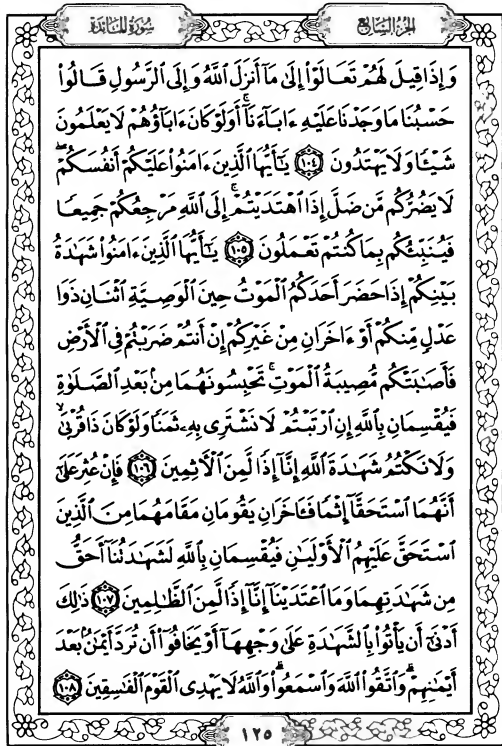 الجزء السابع
سورة المائدة
وَإِذَا قِيلَ لَهُمْ تَعَالَوْا۟ إِلَىٰ مَآ أَنزَلَ ٱللَّهُ وَإِلَى ٱلرَّسُولِ قَالُوا۟
حَسْبُنَا مَا وَجَدْنَا عَلَيْهِ ءَابَآءَنَآۚ أَوَلَوْ كَانَ ءَابَآؤُهُمْ لَا يَعْلَمُونَ
شَيْـًٔا وَلَا يَهْتَدُونَ ١٠٤ يَـٰٓأَيُّهَا ٱلَّذِينَ ءَامَنُوا۟ عَلَيْكُمْ أَنفُسَكُمْۖ
لَا يَضُرُّكُم مَّن ضَلَّ إِذَا ٱهْتَدَيْتُمْۚ إِلَى ٱللَّهِ مَرْجِعُكُمْ جَمِيعًا
فَيُنَبِّئُكُم بِمَا كُنتُمْ تَعْمَلُونَ ١٠٥ يَـٰٓأَيُّهَا ٱلَّذِينَ ءَامَنُوا۟ شَهَـٰدَةُ
بَيْنِكُمْ إِذَا حَضَرَ أَحَدَكُمُ ٱلْمَوْتُ حِينَ ٱلْوَصِيَّةِ ٱثْنَانِ ذَوَا
عَدْلٍ مِّنكُمْ أَوْ ءَاخَرَانِ مِنْ غَيْرِكُمْ إِنْ أَنتُمْ ضَرَبْتُمْ فِى ٱلْأَرْضِ
فَأَصَـٰبَتْكُم مُّصِيبَةُ ٱلْمَوْتِۚ تَحْبِسُونَهُمَا مِنۢ بَعْدِ ٱلصَّلَوٰةِ
فَيُقْسِمَانِ بِٱللَّهِ إِنِ ٱرْتَبْتُمْ لَا نَشْتَرِى بِهِۦ ثَمَنًا وَلَوْ كَانَ ذَا قُرْبَىٰۙ
وَلَا نَكْتُمُ شَهَـٰدَةَ ٱللَّهِ إِنَّآ إِذًا لَّمِنَ ٱلْـَٔاثِمِينَ ١٠٦ فَإِنْ عُثِرَ عَلَىٰٓ
أَنَّهُمَا ٱسْتَحَقَّآ إِثْمًا فَـَٔاخَرَانِ يَقُومَانِ مَقَامَهُمَا مِنَ ٱلَّذِينَ
ٱسْتَحَقَّ عَلَيْهِمُ ٱلْأَوْلَيَـٰنِ فَيُقْسِمَانِ بِٱللَّهِ لَشَهَـٰدَتُنَآ أَحَقُّ
مِن شَهَـٰدَتِهِمَا وَمَا ٱعْتَدَيْنَآ إِنَّآ إِذًا لَّمِنَ ٱلظَّـٰلِمِينَ ١٠٧ ذَٰلِكَ
أَدْنَىٰٓ أَن يَأْتُوا۟ بِٱلشَّهَـٰدَةِ عَلَىٰ وَجْهِهَآ أَوْ يَخَافُوٓا۟ أَن تُرَدَّ أَيْمَـٰنٌۢ بَعْدَ
أَيْمَـٰنِهِمْۗ وَٱتَّقُوا۟ ٱللَّهَ وَٱسْمَعُوا۟ۗ وَٱللَّهُ لَا يَهْدِى ٱلْقَوْمَ ٱلْفَـٰسِقِينَ ١٠٨
١٢٥